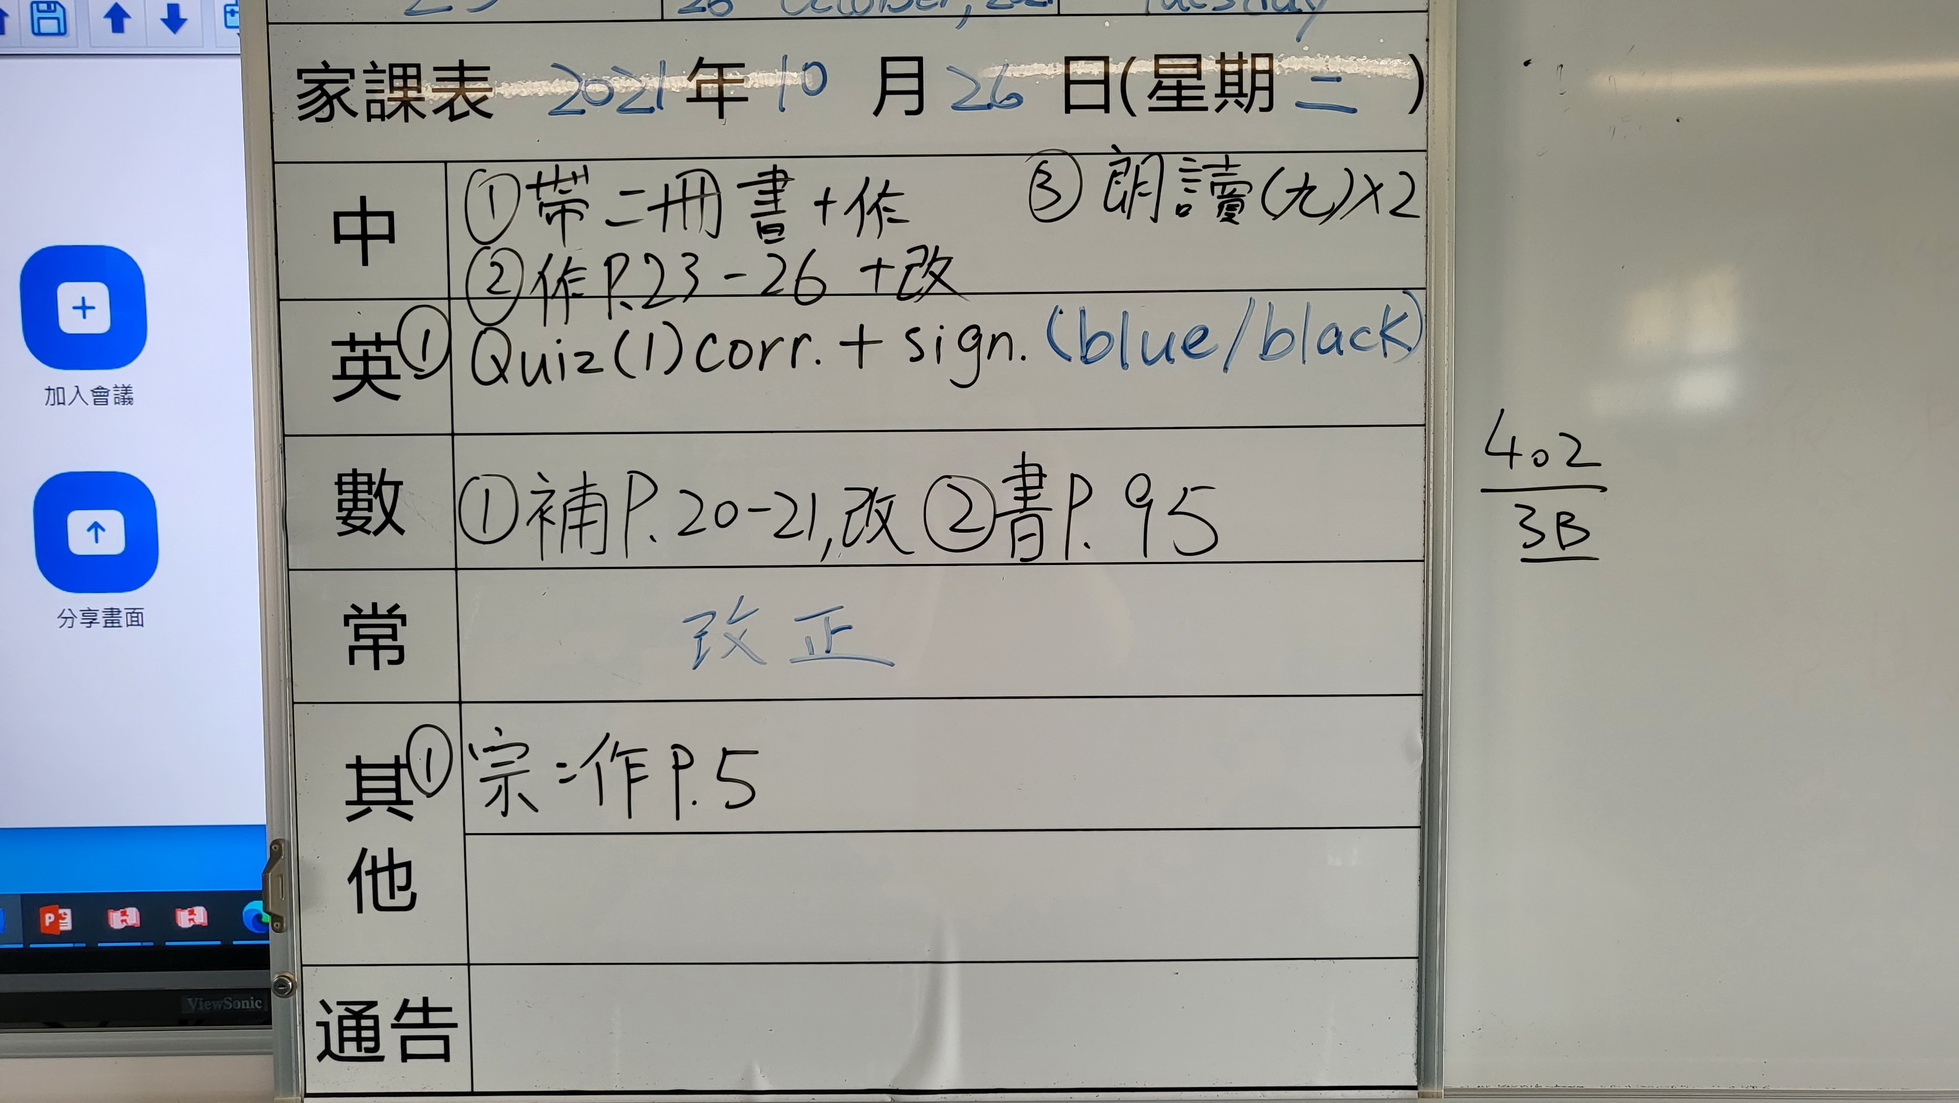 26 October, 2021 Tuesday
家課表 2021年10月26日(星期二)
中 ①帶二冊書+作 ③朗讀(九)x2
②作P.23-26 +改
英 ① Quiz(1)corr. + sign. (blue/black)
數 ①補P.20-21,改 ②書P.95
常 改正
其他 ①宗:作P.5
通告
402
3B
加入會議
分享畫面
ViewSonic